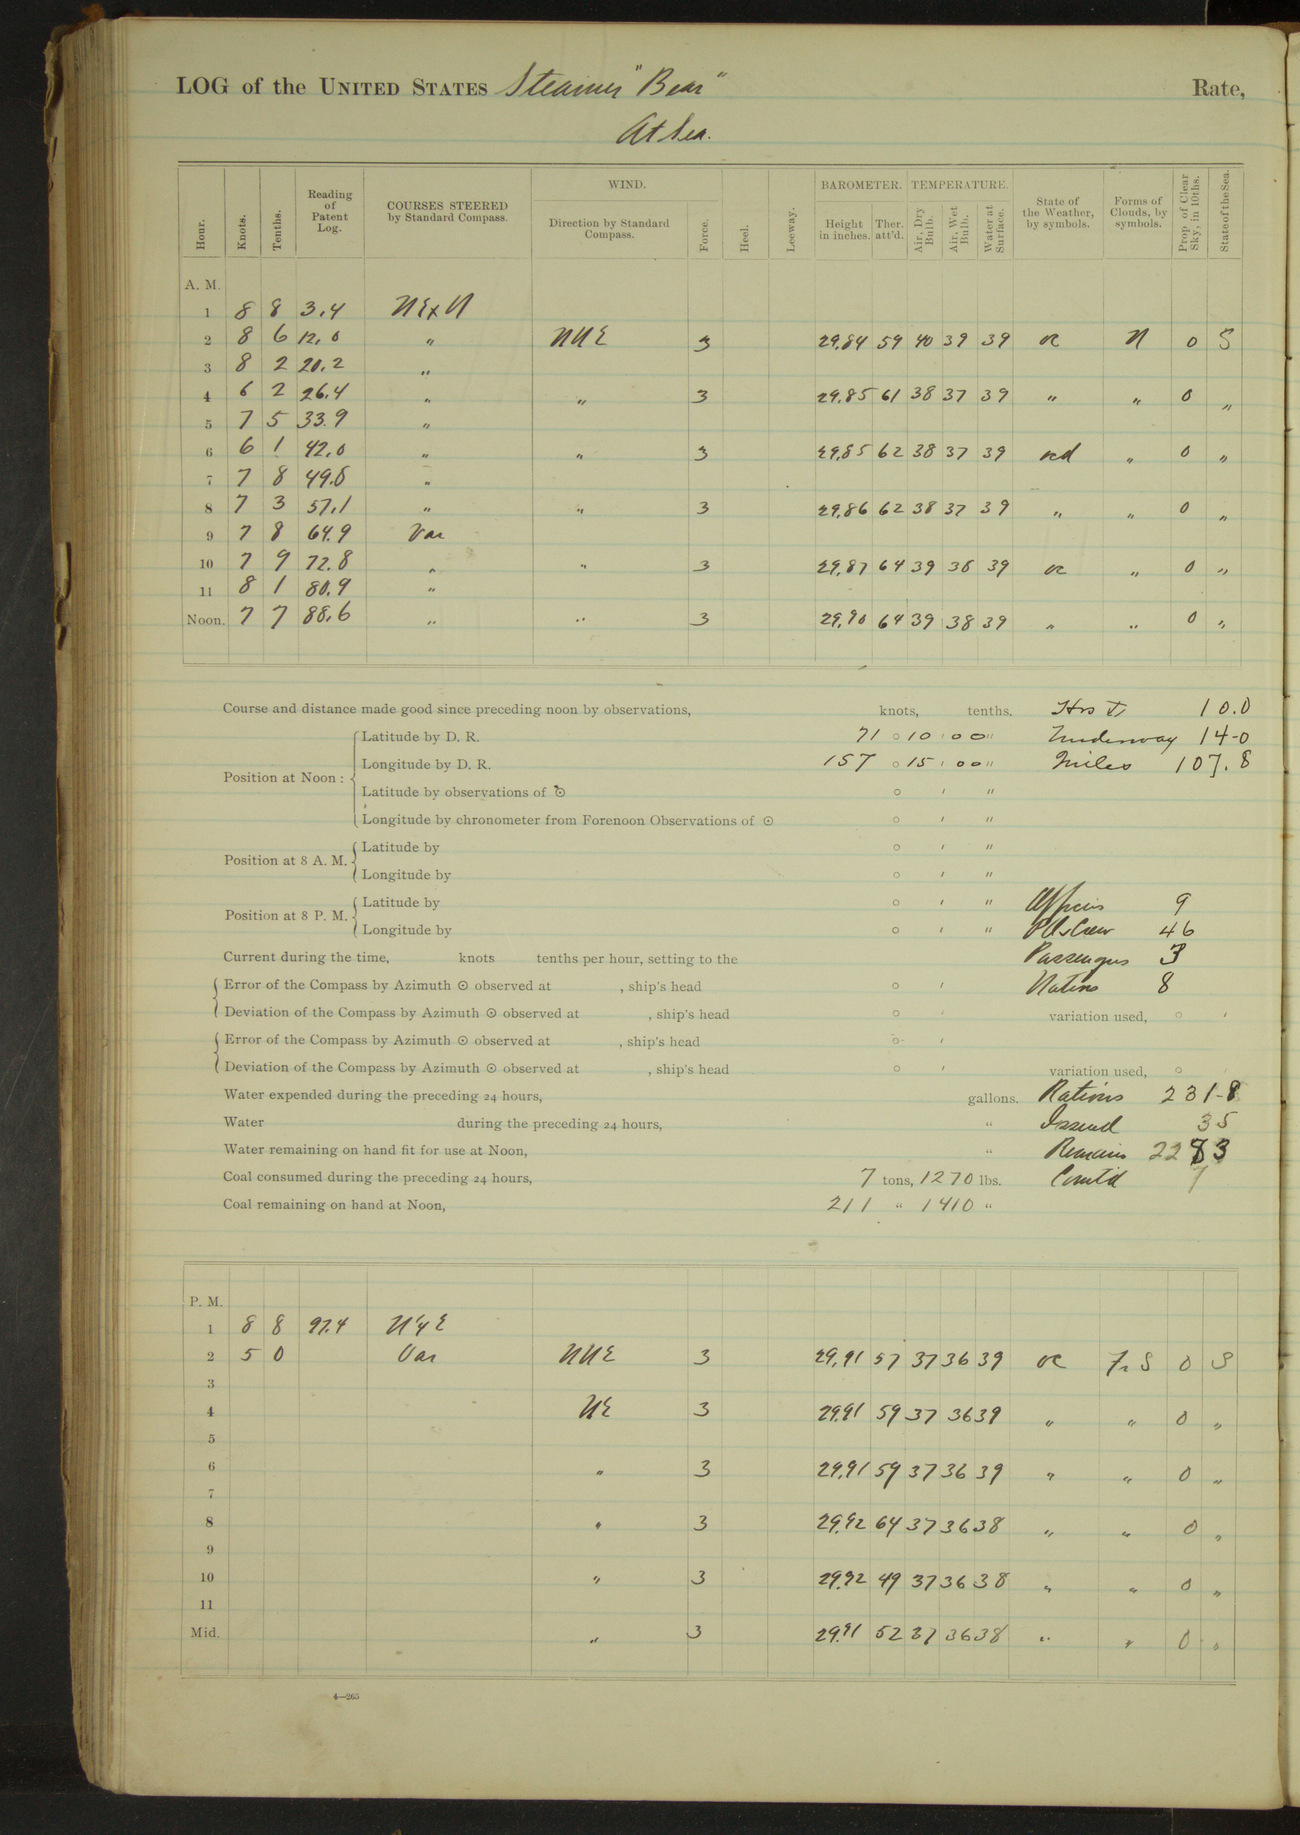 LOG of the UNITED STATES Steamer "Bear" Rate,
At Sea.
Hour. Knots. Tenths. Reading of Patent Log. COURSES STEERED by Standard Compass. WIND. Direction by Standard Compass. Force. Heel. Leeway. BAROMETER. Height in inches. Ther. att'd. TEMPERATURE. Air, Dry Bulb. Air, Wet Bulb. Water at Surface. State of the Weather, by symbols. Forms of Clouds, by symbols. Prop. of Clear Sky, in 10ths. State of the Sea.
A. M.
1 8 8 3.4 NExN
2 8 6 12.0 " NNE 3 29.84 59 40 39 39 oc N 0 S
3 8 2 20.2 "
4 6 2 26.4 " " 3 29.85 61 38 37 39 " " 0 "
5 7 5 33.9 "
6 6 1 42.0 " " 3 29.85 62 38 37 39 ocd " 0 "
7 7 8 49.8 "
8 7 3 57.1 " " 3 29.86 62 38 37 39 " " 0 "
9 7 8 64.9 Var
10 7 9 72.8 " " 3 29.87 64 39 38 39 oc " 0 "
11 8 1 80.9 "
Noon. 7 7 88.6 " " 3 29.90 64 39 38 39 " " 0 "
Course and distance made good since preceding noon by observations, knots, tenths. Hrs 10.0
Position at Noon: Latitude by D. R. 71 ° 10 ' 00 " Underway 14-0
Longitude by D. R. 157 ° 15 ' 00 " Miles 107.8
Latitude by observations of ° ' "
Longitude by chronometer from Forenoon Observations of ☉ ° ' "
Position at 8 A. M. Latitude by ° ' "
Longitude by ° ' "
Position at 8 P. M. Latitude by ° ' " Officers 9
Longitude by ° ' " Crew 46
Current during the time, knots tenths per hour, setting to the Passengers 3
Error of the Compass by Azimuth ☉ observed at , ship's head ° ' Natives 8
Deviation of the Compass by Azimuth ☉ observed at , ship's head ° ' variation used, ° '
Error of the Compass by Azimuth ☉ observed at , ship's head ° '
Deviation of the Compass by Azimuth ☉ observed at , ship's head ° ' variation used, ° '
Water expended during the preceding 24 hours, gallons. Rations 231-8
Water during the preceding 24 hours, " Issued 35
Water remaining on hand fit for use at Noon, " Remains 2283
Coal consumed during the preceding 24 hours, 7 tons, 1270 lbs. Comt'd 7
Coal remaining on hand at Noon, 211 " 1410 "
P. M.
1 8 8 97.4 NyE
2 5 0 Var NNE 3 29.91 57 37 36 39 oc 0 S
3
4 NE 3 29.91 59 37 36 39 " " 0 "
5
6 " 3 29.91 59 37 36 39 " " 0 "
7
8 " 3 29.92 64 37 36 38 " " 0 "
9
10 " 3 29.92 49 37 36 38 " " 0 "
11
Mid. " 3 29.91 52 37 36 38 " " 0 "
4—265